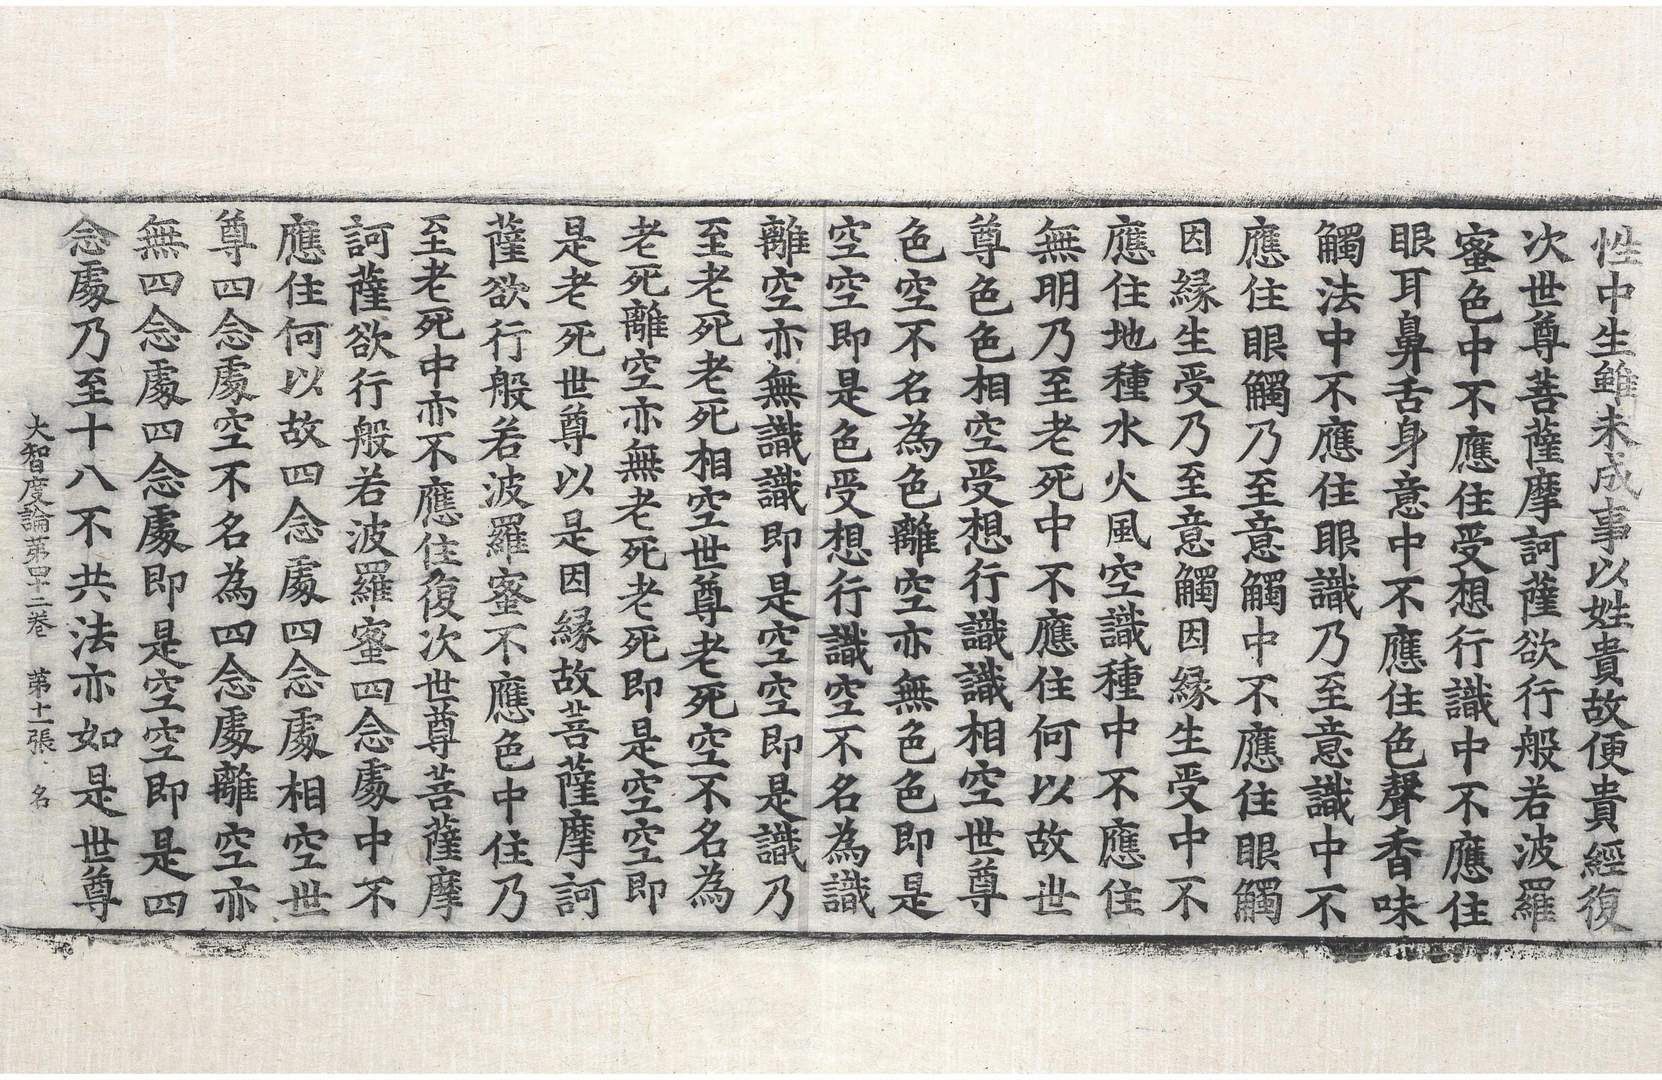 性中生雖未成事以姓貴故便貴經復
次世尊菩薩摩訶薩欲行般若波羅
蜜色中不應住受想行識中不應住
眼耳鼻舌身意中不應住色聲香味
觸法中不應住眼識乃至意識中不
應住眼觸乃至意觸中不應住眼觸
因縁生受乃至意觸因縁生受中不
應住地種水火風空識種中不應住
無明乃至老死中不應住何以故世
尊色色相空受想行識識相空世尊
色空不名為色離空亦無色色即是
空空即是色受想行識空不名為識
離空亦無識識即是空空即是識乃
至老死老死相空世尊老死空不名為
老死離空亦無老死老死即是空空即
是老死世尊以是因縁故菩薩摩訶
薩欲行般若波羅蜜不應色中住乃
至老死中亦不應住復次世尊菩薩摩
訶薩欲行般若波羅蜜四念處中不
應住何以故四念處四念處相空世
尊四念處空不名為四念處離空亦
無四念處四念處即是空空即是四
念處乃至十八不共法亦如是世尊
大智度論第四十二卷　第十一張　名